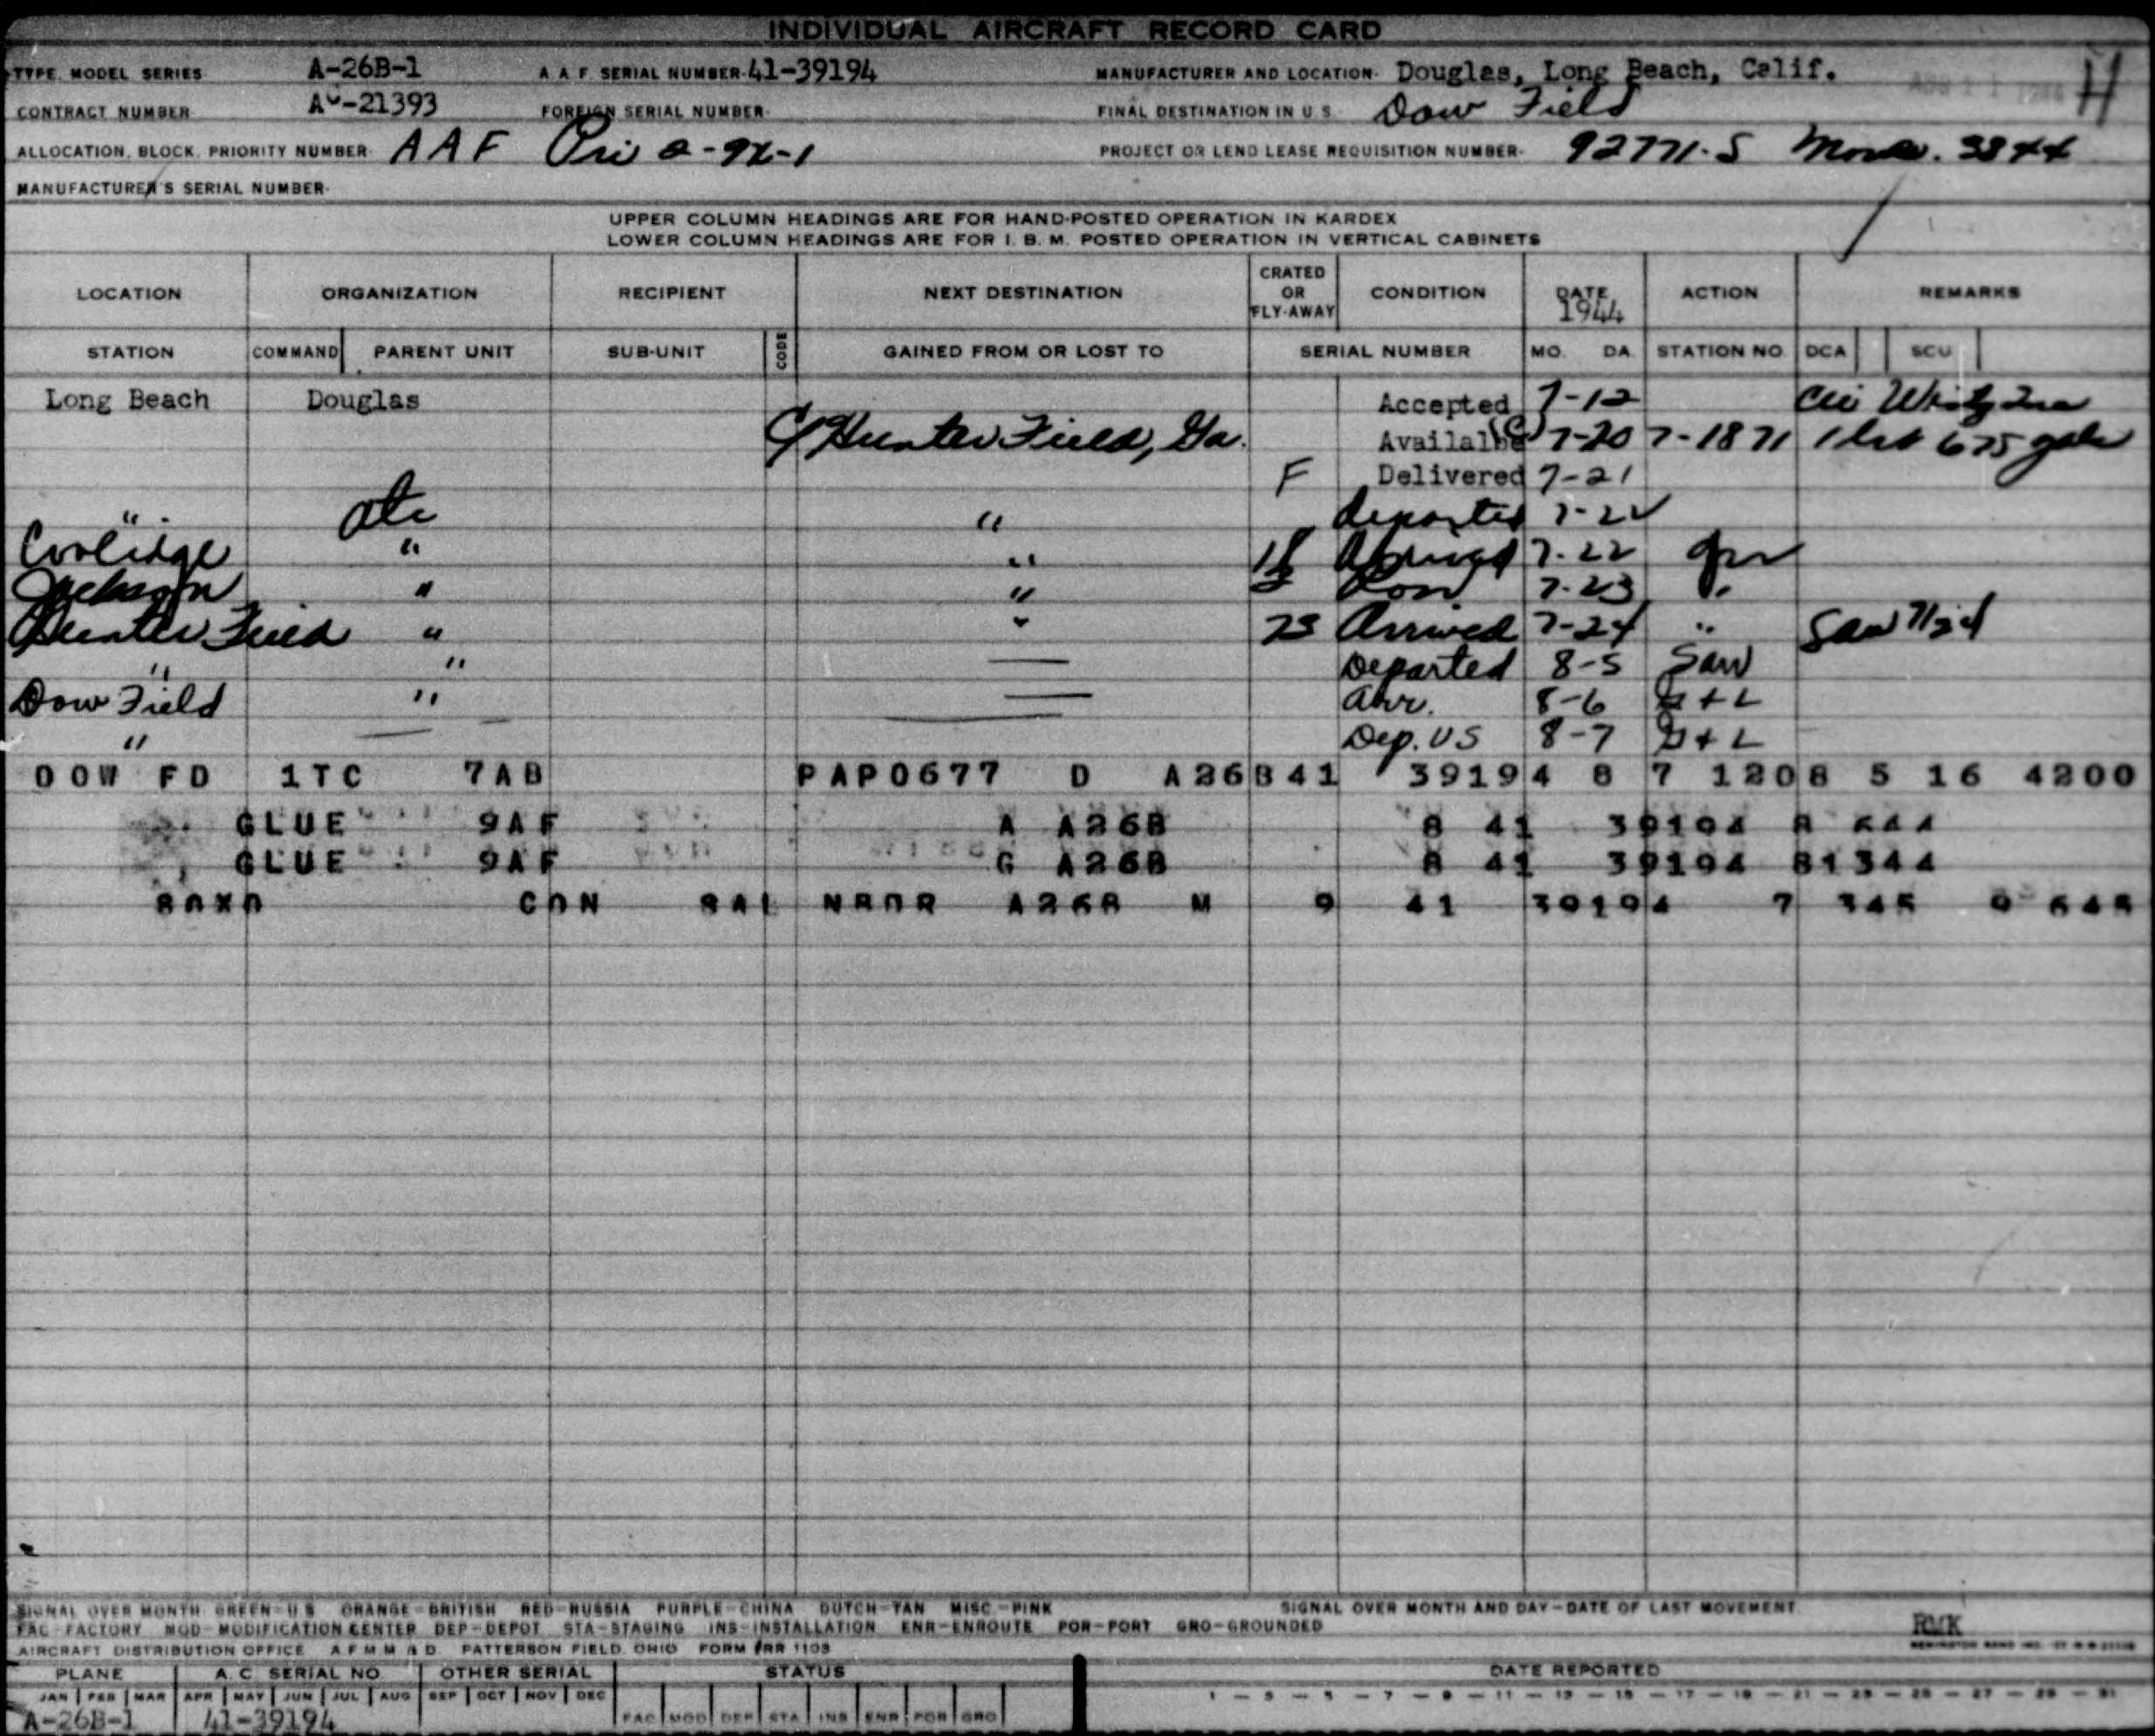 INDIVIDUAL AIRCRAFT RECORD CARD
TYPE, MODEL, SERIES A-26B-1 A.A.F. SERIAL NUMBER- 41-39194 MANUFACTURER AND LOCATION- Douglas, Long Beach, Calif. H
CONTRACT NUMBER -21393 FOREIGN SERIAL NUMBER- FINAL DESTINATION IN U S Dow Field
ALLOCATION, BLOCK, PRIORITY NUMBER- AAF Pri 2-9X-1 PROJECT OR LEND LEASE REQUISITION NUMBER- 92771-S
MANUFACTURER'S SERIAL NUMBER-
UPPER COLUMN HEADINGS ARE FOR HAND-POSTED OPERATION IN KARDEX
LOWER COLUMN HEADINGS ARE FOR I. B. M. POSTED OPERATION IN VERTICAL CABINETS
LOCATION ORGANIZATION RECIPIENT NEXT DESTINATION CRATED OR FLY-AWAY CONDITION DATE 1944 ACTION REMARKS
STATION COMMAND PARENT UNIT SUB-UNIT CODE GAINED FROM OR LOST TO SERIAL NUMBER MO. DA. STATION NO. DCA SCU
Long Beach Douglas Accepted 7-12
Hunter Field, Ga. Available 7-20 7-18 71 675
F Delivered 7-21
" atc " departed 7-22
Coolidge " " Arrived 7-22
Jackson " " 7-23 "
Hunter Field " " 23 Arrived 7-24 " Saw 7/24
" " — Departed 8-5 Saw
Dow Field " — Arr. 8-6 G+L
" — — Dep. US 8-7 G+L
DOW FD 1TC 7AB PAP0677 D A26B41 39194 8 7 1208 5 16 4200
GLUE 9AF A A26B 8 41 39194 8 644
GLUE 9AF G A26B 8 41 39194 81344
CON SAL A26B M 9 41 39194 7 345 9 645
SIGNAL OVER MONTH GREEN-U S ORANGE-BRITISH RED-RUSSIA PURPLE-CHINA DUTCH-TAN MISC.-PINK SIGNAL OVER MONTH AND DAY-DATE OF LAST MOVEMENT.
FAC-FACTORY MOD-MODIFICATION CENTER DEP-DEPOT STA-STAGING INS-INSTALLATION ENR-ENROUTE POR-PORT GRO-GROUNDED
AIRCRAFT DISTRIBUTION OFFICE PATTERSON FIELD, OHIO FORM 1103
PLANE A. C. SERIAL NO. OTHER SERIAL STATUS DATE REPORTED
JAN FEB MAR APR MAY JUN JUL AUG SEP OCT NOV DEC 1 - 3 - 5 - 7 - 9 - 11 - 13 - 15 - 17 - 19 - 21 - 23 - 25 - 27 - 29 - 31
A-26B-1 41-39194 FAC MOD DEP STA INS ENR POR GRO